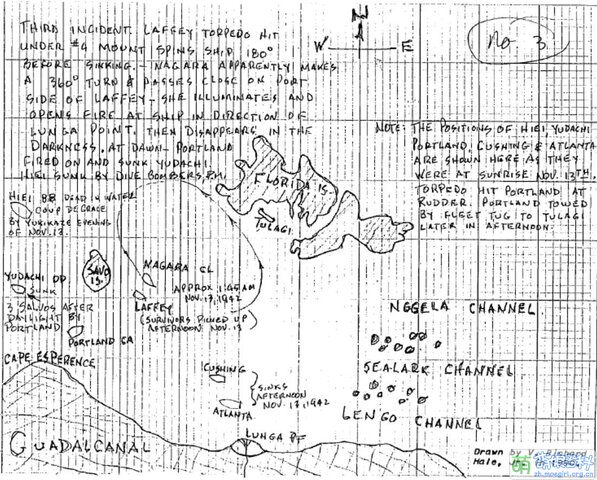 THIRD INCIDENT. LAFFEY TORPEDO HIT
UNDER #4 MOUNT SPINS SHIP 180°
BEFORE SINKING. - NAGARA APPARENTLY MAKES
A 360° TURN & PASSES CLOSE ON PORT
SIDE OF LAFFEY - SHE ILLUMINATES AND
OPENS FIRE AT SHIP IN DIRECTION OF
LUNGA POINT, THEN DISAPPEARS IN THE
DARKNESS. AT DAWN - PORTLAND
FIRED ON AND SUNK YUDACHI.
HIEI SUNK BY DIVE BOMBERS, P.M.
N
W
E
No 3
NOTE: THE POSITIONS OF HIEI, YUDACHI
PORTLAND, CUSHING & ATLANTA
ARE SHOWN HERE AS THEY
WERE AT SUNRISE NOV. 13TH.
TORPEDO HIT PORTLAND AT
RUDDER. PORTLAND TOWED
BY FLEET TUG TO TULAGI
LATER IN AFTERNOON.
HIEI BB DEAD IN WATER
COUP DEGRACE
BY YUKIKAZE EVENING
OF NOV. 13.
FLORIDA IS.
TULAGI
SAVO
IS.
YUDACHI DD
SUNK
3 SALVOS AFTER
DAYLIGHT BY
PORTLAND
PORTLAND CA
NAGARA CL
APPROX 1:45 AM
NOV. 13, 1942
LAFFEY
(SURVIVORS PICKED UP
AFTERNOON NOV. 13
NGGELA CHANNEL
SEALARK CHANNEL
LENGO CHANNEL
CAPE ESPERENCE
CUSHING
ATLANTA
SINKS
AFTERNOON
NOV. 13, 1942
LUNGA PT
GUADALCANAL
Drawn by V. Richard
Hale,
萌
zh.moegirl.org.cn